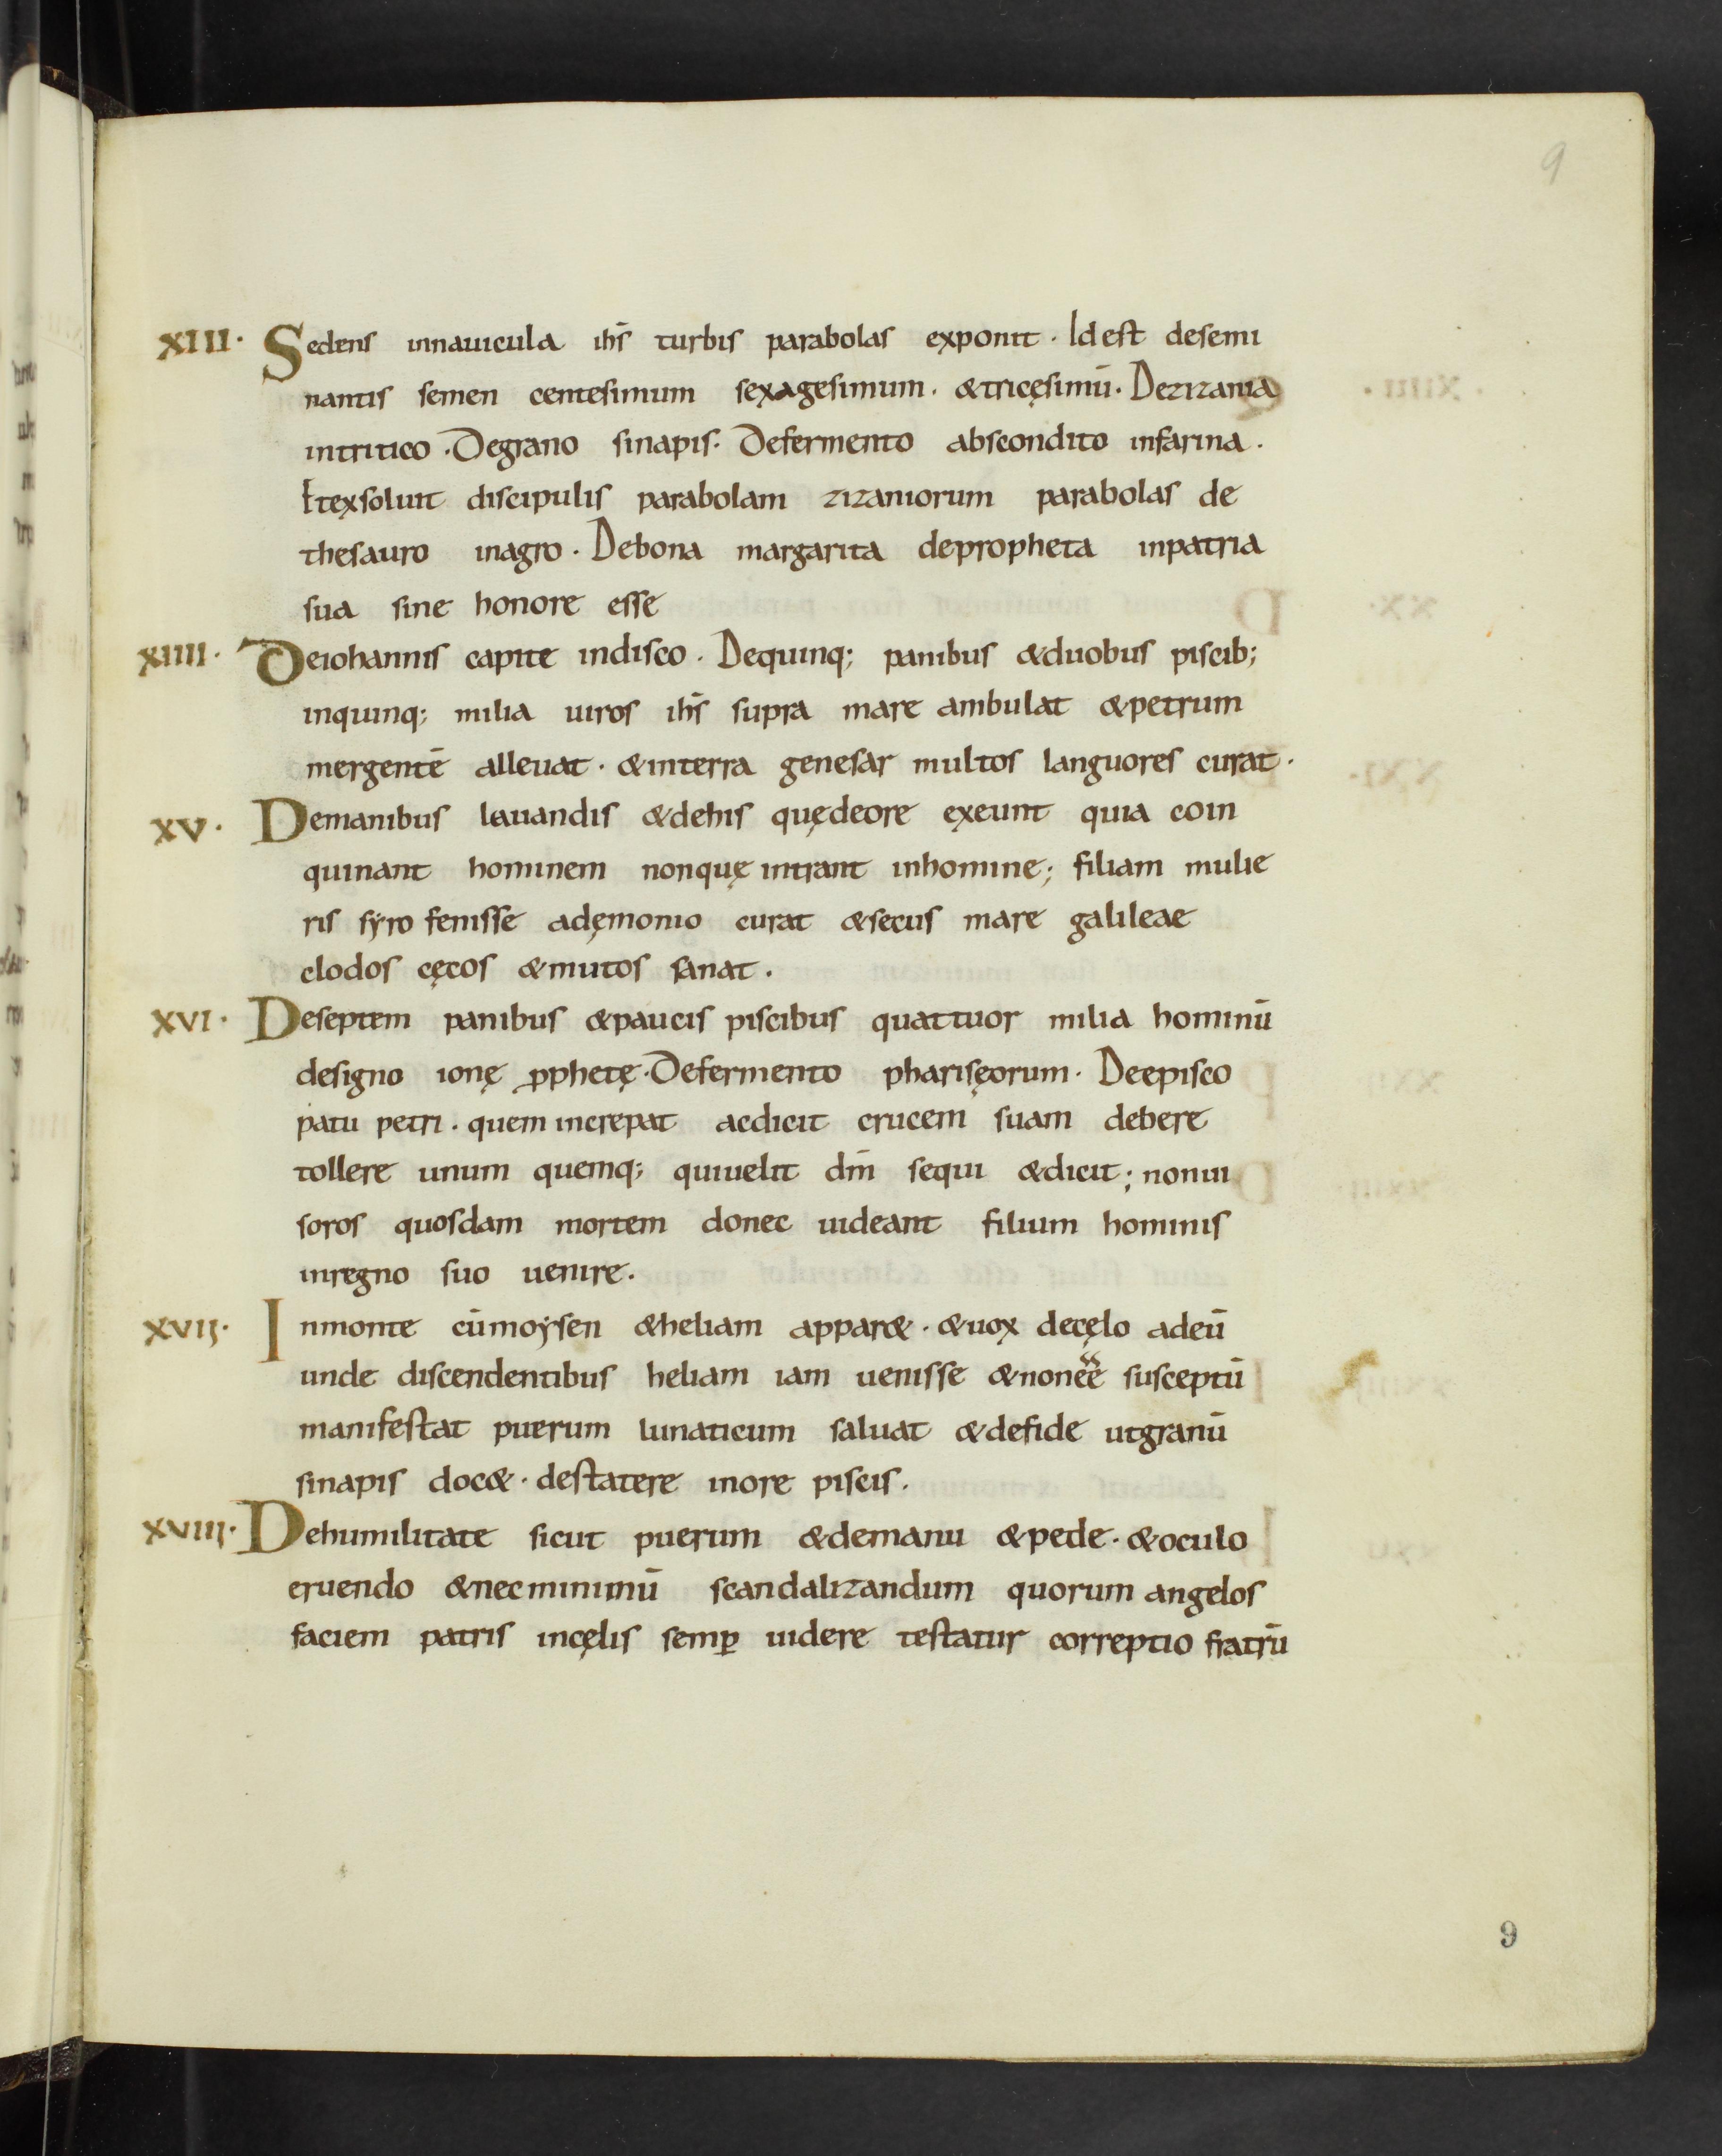 9
XIII· Sedens innauicula ihs̄ turbis parabolas exponit · Id est desemi
nantis semen centesimum sexagesimum · &tricęsimū· Dezizania
intritico · Degrano sinapis · Defermento abscondito infarina ·
Etexsoluit discipulis parabolam zizaniorum parabolas de
thesauro inagro · Debona margarita depropheta inpatria
sua sine honore esse
XIIII· Deiohannis capite indisco · Dequinq; panibus &duobus piscib;
inquinq; milia uiros ihs̄ supra mare ambulat &petrum
mergentē alleuat · &interra genesar multos languores curat ·
XV· Demanibus lauandis &dehis quędeore exeunt quia coin
quinant hominem nonquę intrant inhomine; filiam mulie
ris sẏro fenisse adęmonio curat &secus mare galileae
clodos cęcos &mutos sanat ·
XVI· Deseptem panibus &paucis piscibus quattuor milia hominū
designo ionę ꝓphetę · Defermento pharisęorum · Deepisco
patu petri · quem increpat acdicit crucem suam debere
tollere unum quemq; quiuelit dm̄ sequi &dicit; nonui
soros quosdam mortem donec uideant filium hominis
inregno suo uenire ·
XVII· Inmonte cūmoẏsen &heliam appar& · &uox decęlo adeū
unde discendentibus heliam iam uenisse &nonēē susceptū
manifestat puerum lunaticum saluat &defide utgranū
sinapis doc& · destatere inore piscis ·
XVIII· Dehumilitate sicut puerum &demanu &pede · &oculo
eruendo &necminimū scandalizandum quorum angelos
faciem patris incęlis semꝑ uidere testatur correptio fratrū
9